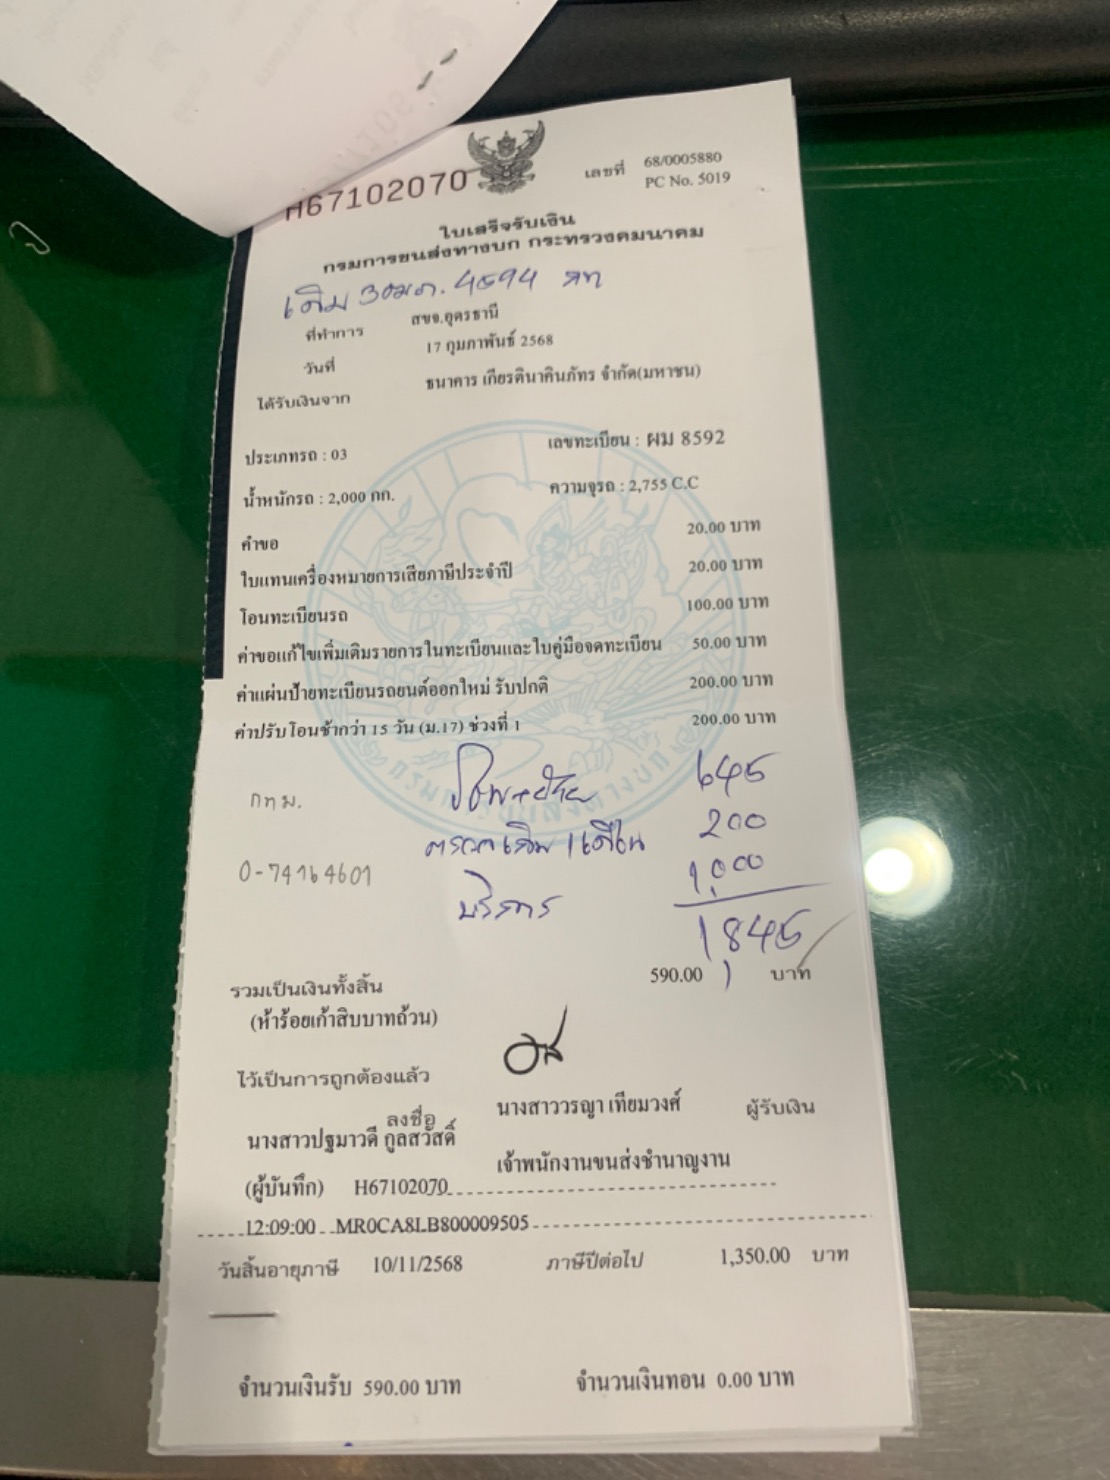 H67102070
เลขที่ 68/0005880
PC No. 5019
ใบเสร็จรับเงิน
กรมการขนส่งทางบก กระทรวงคมนาคม
เดิม 30ม.ค. 4594 สท
ที่ทำการ สขจ.อุดรธานี
วันที่ 17 กุมภาพันธ์ 2568
ได้รับเงินจาก ธนาคาร เกียรตินาคินภัทร จำกัด(มหาชน)
ประเภทรถ : 03 เลขทะเบียน : ผม 8592
น้ำหนักรถ : 2,000 กก. ความจุรถ : 2,755 C.C
คำขอ 20.00 บาท
ใบแทนเครื่องหมายการเสียภาษีประจำปี 20.00 บาท
โอนทะเบียนรถ 100.00 บาท
ค่าขอแก้ไขเพิ่มเติมรายการในทะเบียนและใบคู่มือจดทะเบียน 50.00 บาท
ค่าแผ่นป้ายทะเบียนรถยนต์ออกใหม่ รับปกติ 200.00 บาท
ค่าปรับโอนช้ากว่า 15 วัน (ม.17) ช่วงที่ 1 200.00 บาท
กทม. 645
ตรวจเดิม 1 เดือน 200
0-74164601 1,000
บริการ
1,845
รวมเป็นเงินทั้งสิ้น 590.00 บาท
(ห้าร้อยเก้าสิบบาทถ้วน)
ไว้เป็นการถูกต้องแล้ว
ลงชื่อ นางสาววรญา เทียมวงศ์ ผู้รับเงิน
นางสาวปฐมาวดี กูลสวัสดิ์
เจ้าพนักงานขนส่งชำนาญงาน
(ผู้บันทึก) H67102070
12:09:00 MR0CA8LB800009505
วันสิ้นอายุภาษี 10/11/2568 ภาษีปีต่อไป 1,350.00 บาท
จำนวนเงินรับ 590.00 บาท จำนวนเงินทอน 0.00 บาท